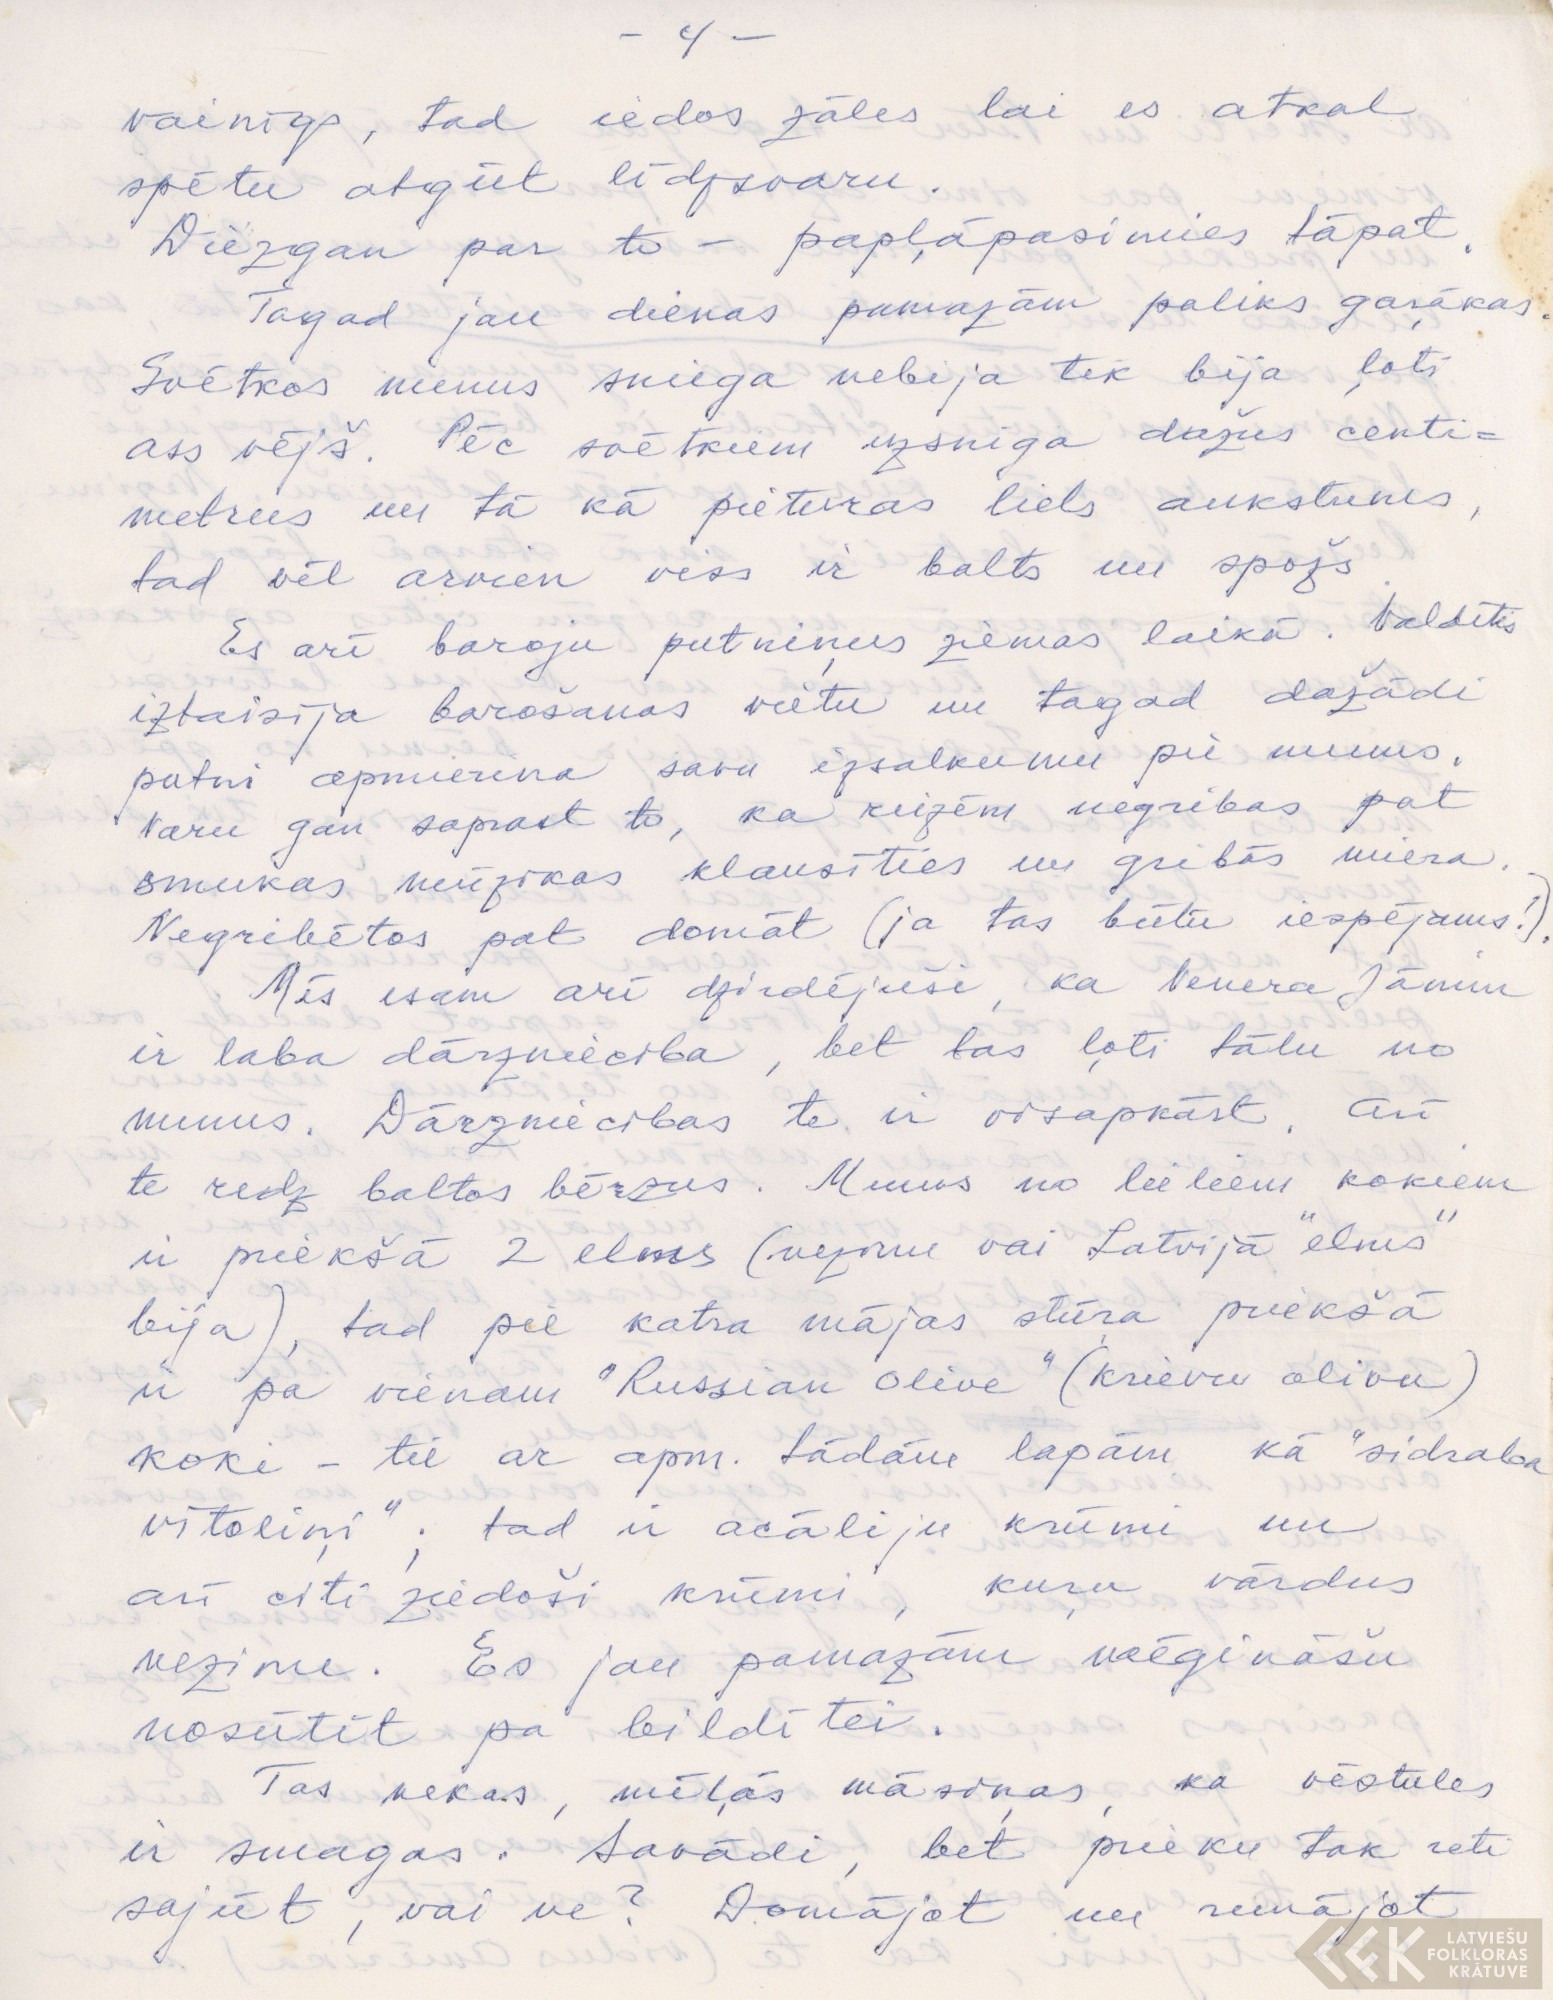 - 4 -
vainīgs, tad iedos zāles lai es atkal
spētu atgūt līdzsvaru.
Diezgan par to - papļāpāsimies tāpat.
Tagad jau dienas pamazām paliks gaŗākas.
Svētkos mums sniega nebija tik bija ļoti
ass vējš. Pēc svētkiem uzsniga dažus centi=
metrus un tā kā pieturas liels aukstums,
tad vēl arvien viss ir balts un spožs.
Es arī baroju putniņus ziemas laikā. Valdītis
iztaisīja barošanas vietu un tagad dažādi
putni apmierina savu izsalkumu pie mums.
Varu gan saprast to, ka reizēm negribas pat
smukas mūzikas klausīties un gribās miera.
Negribētos pat domāt (ja tas būtu iespējams!).
Mēs esam arī dzirdējuši, ka Venera Jāmim
ir laba dārzniecība, bet tas ļoti tālu no
mums. Dārzniecības te ir visapkārt. Arī
te redz baltos bērzus. Mums no lieliem kokiem
ir priekšā 2 elms (nezinu vai Latvijā "elms"
bija), tad pie katra mājas stūŗa priekšā
ir pa vienam "Russian Olive" (krievu olīvu)
koki - tie ar apm. tādām lapām kā "sidraba
vītoliņi"; tad ir acāliju krūmi un
arī citi ziedoši krūmi, kuŗu vārdus
nezinu. Es jau pamazām mēģināšu
nosūtīt pa bildītei.
Tas nekas, mīļās māsiņas, ka vēstules
ir smagas. Savādi, bet prieku tak reti
sajūt, vai ne? Domājot un runājot
LATVIEŠU
FOLKLORAS
KRĀTUVE